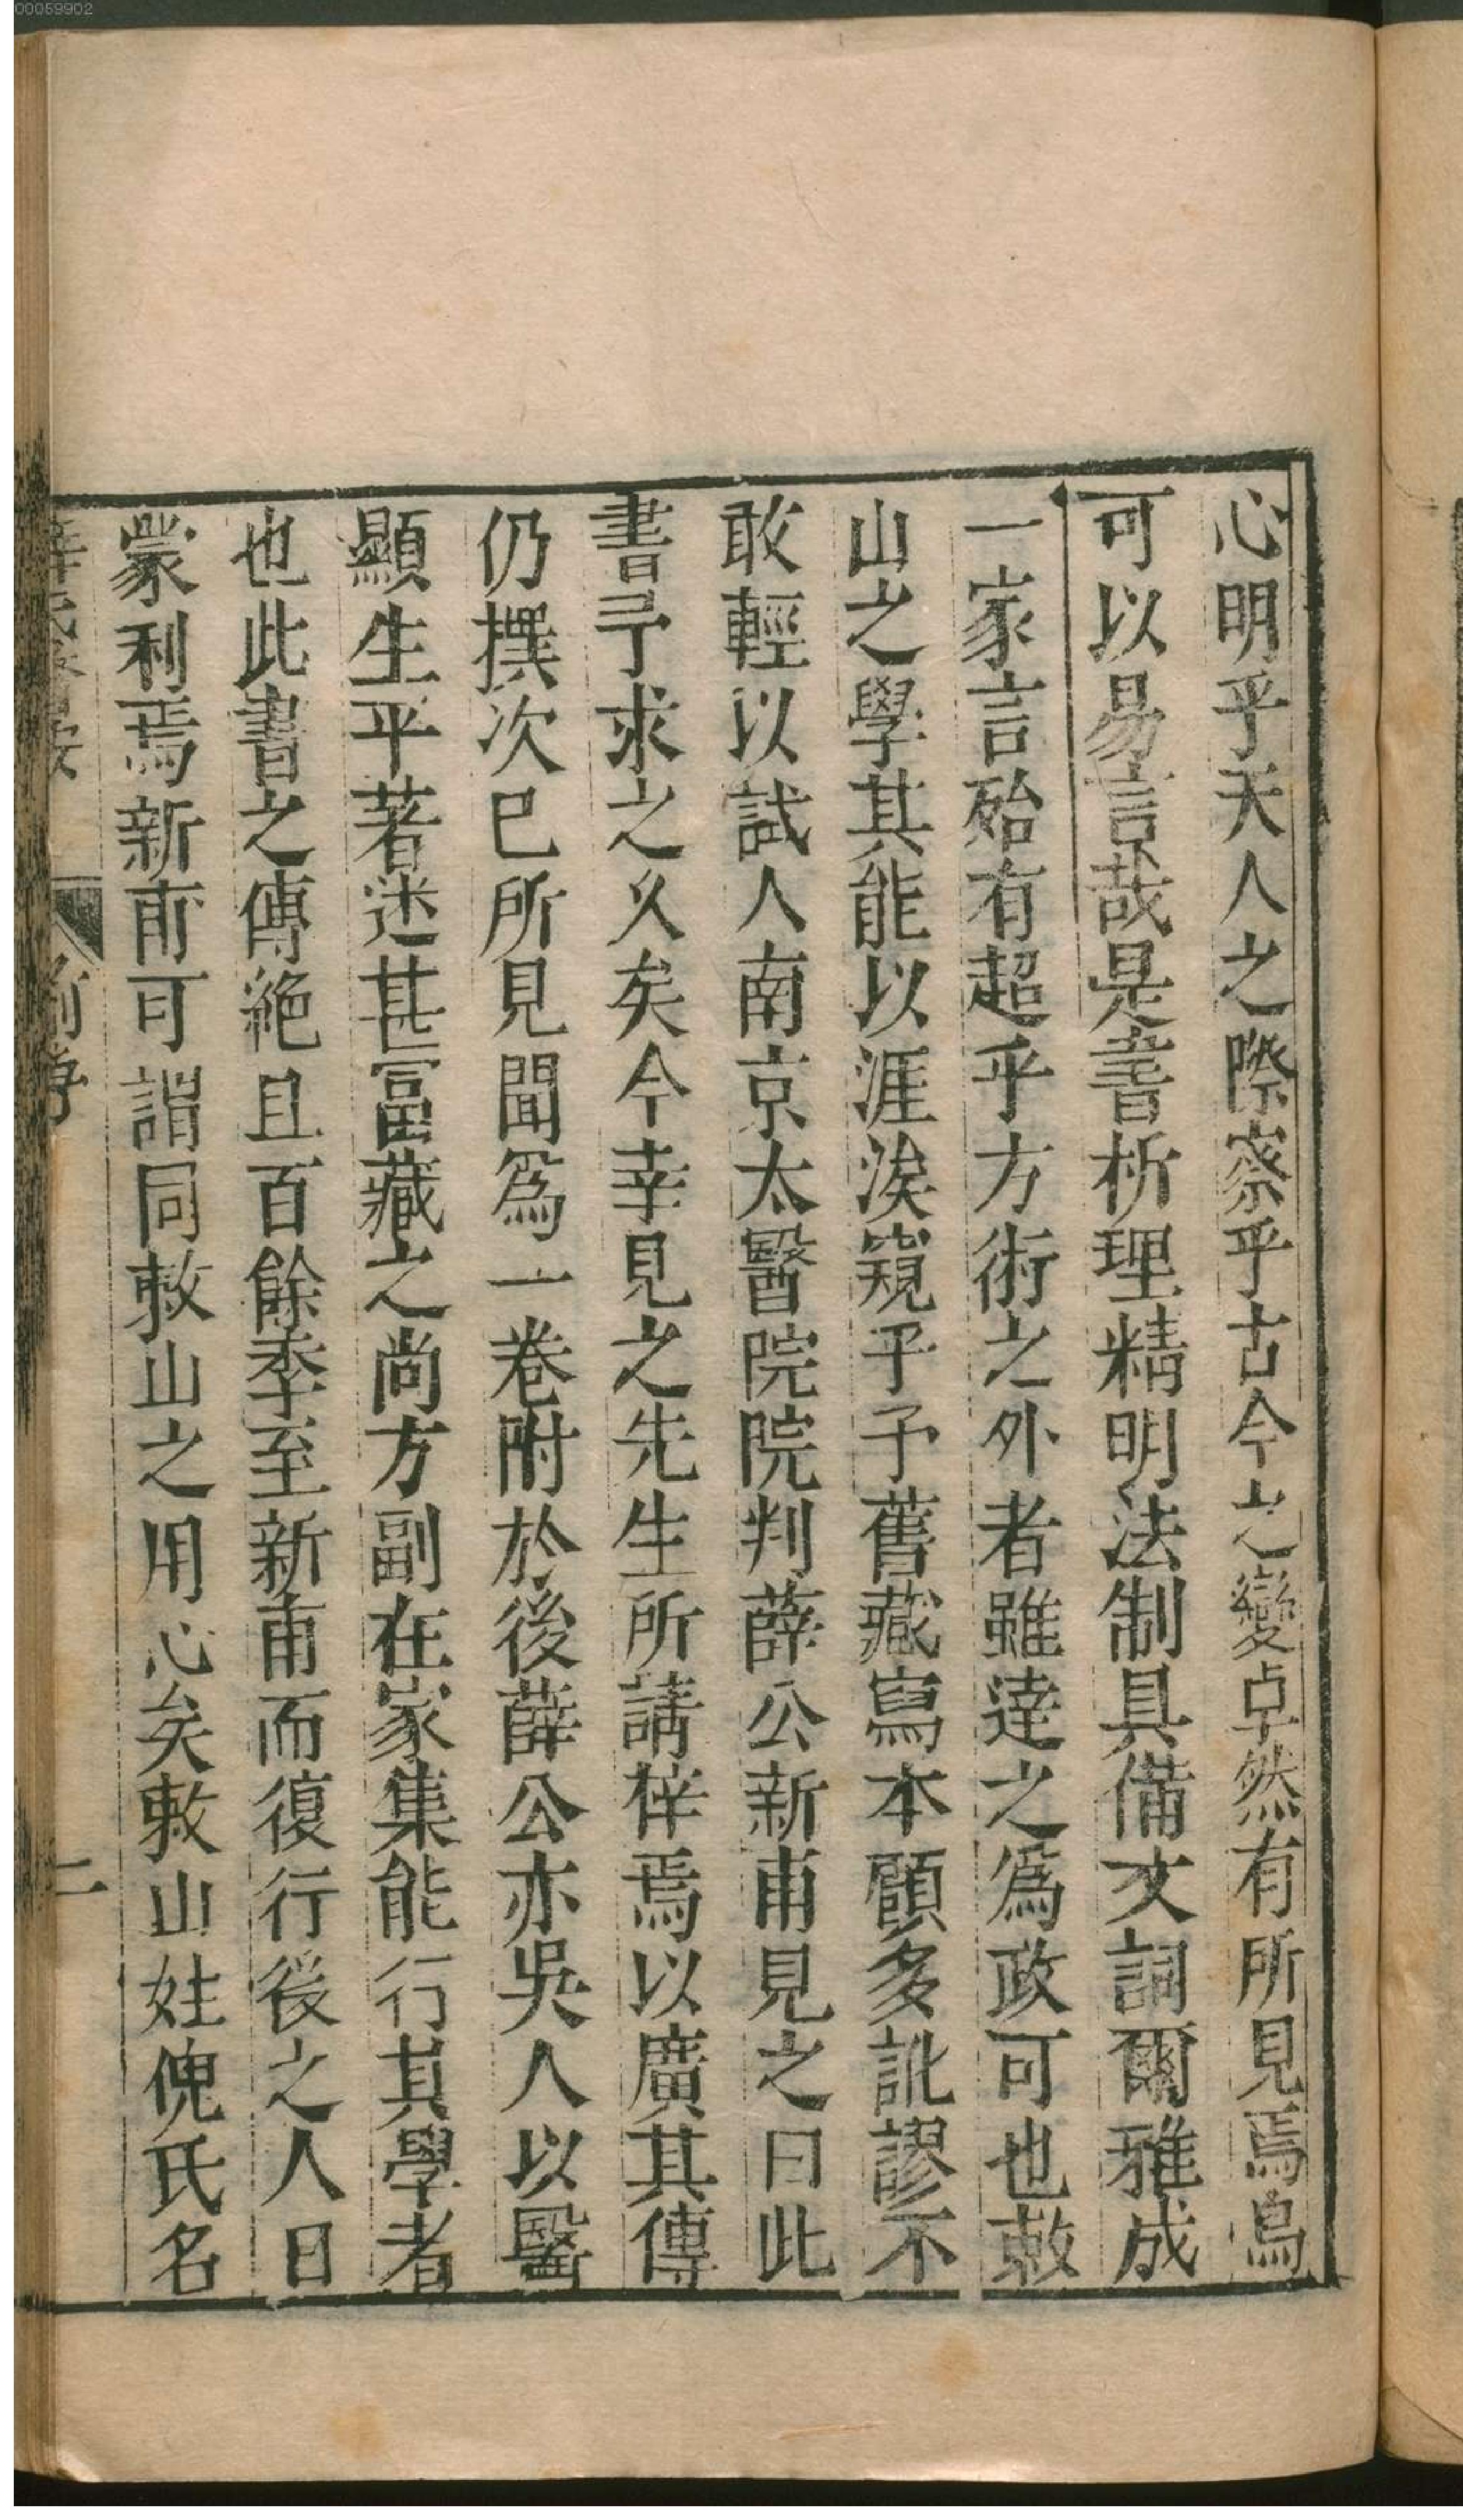 00059902
心明乎天人之際察乎古今之變卓然有所見焉烏
可以易言哉是書析理精明法制具備文詞爾雅成
一家言殆有超乎方術之外者雖達之爲政可也敕
山之學其能以涯涘窺乎予舊藏寫本顧多訛謬不
敢輕以試人南京太醫院院判薛公新甫見之曰此
書予求之久矣今幸見之先生所請梓焉以廣其傳
仍撰次已所見聞爲一卷附於後薛公亦吳人以醫
顯生平著述甚富藏之尚方副在家集能行其學者
也此書之傳絕且百餘季至新甫而復行後之人日
蒙利焉新甫可謂同敕山之用心矣敕山姓倪氏名
薛氏醫按
前序
二